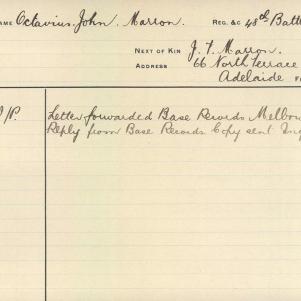 NAME Octavius John Marron. REG. &C 48th Batt
NEXT OF KIN J. T. Marron.
ADDRESS 66 North Terrace
Adelaide
Letter forwarded Base Records Melbou
Reply from Base Records Copy sent